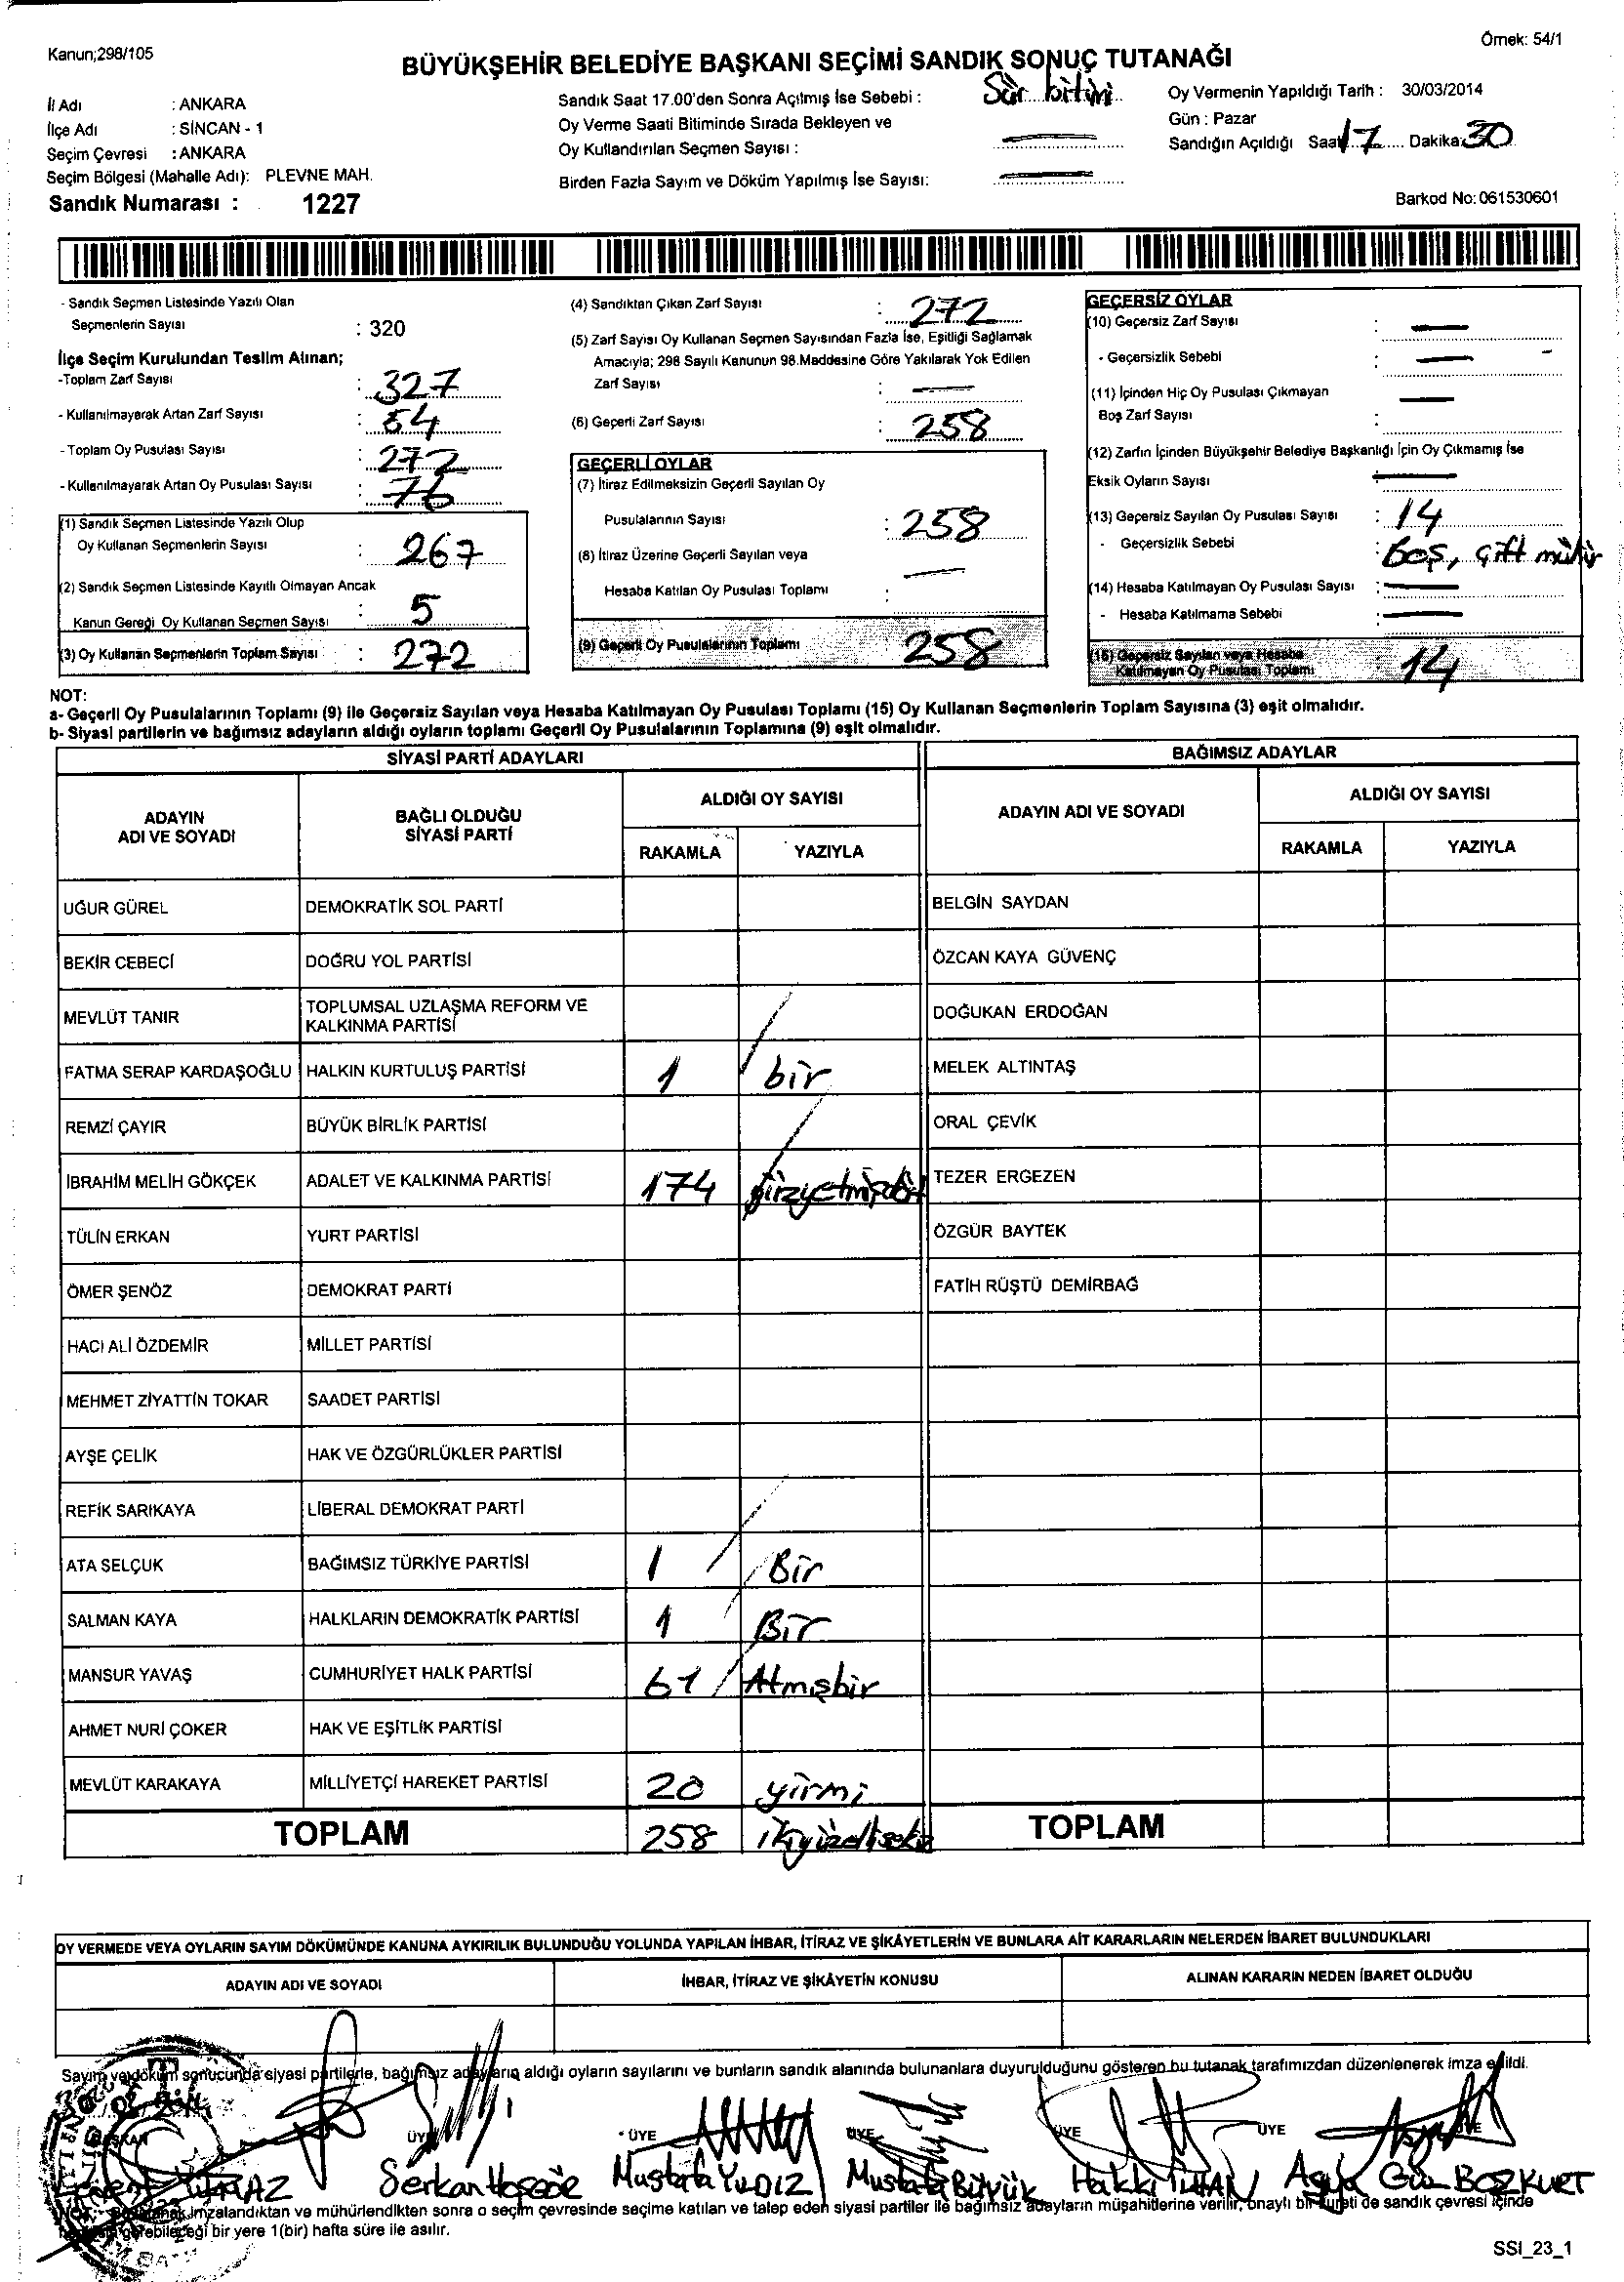 Kanun;298/105
Örnek: 54/1
BÜYÜKŞEHİR BELEDİYE BAŞKANI SEÇİMİ SANDIK SONUÇ TUTANAĞI
İl Adı : ANKARA
İlçe Adı : SİNCAN - 1
Seçim Çevresi : ANKARA
Seçim Bölgesi (Mahalle Adı): PLEVNE MAH.
Sandık Numarası : 1227
Sandık Saat 17.00'den Sonra Açılmış İse Sebebi : Sür bitimi
Oy Verme Saati Bitiminde Sırada Bekleyen ve
Oy Kullandırılan Seçmen Sayısı :
Birden Fazla Sayım ve Döküm Yapılmış İse Sayısı:
Oy Vermenin Yapıldığı Tarih : 30/03/2014
Gün : Pazar
Sandığın Açıldığı Saat 17 Dakika: 30
Barkod No: 061530601
- Sandık Seçmen Listesinde Yazılı Olan
Seçmenlerin Sayısı : 320
İlçe Seçim Kurulundan Teslim Alınan;
-Toplam Zarf Sayısı : 327
- Kullanılmayarak Artan Zarf Sayısı : 54
- Toplam Oy Pusulası Sayısı : 272
- Kullanılmayarak Artan Oy Pusulası Sayısı : 76
(1) Sandık Seçmen Listesinde Yazılı Olup
Oy Kullanan Seçmenlerin Sayısı : 267
(2) Sandık Seçmen Listesinde Kayıtlı Olmayan Ancak
Kanun Gereği Oy Kullanan Seçmen Sayısı : 5
(3) Oy Kullanan Seçmenlerin Toplam Sayısı : 272
(4) Sandıktan Çıkan Zarf Sayısı : 272
(5) Zarf Sayısı Oy Kullanan Seçmen Sayısından Fazla İse, Eşitliği Sağlamak
Amacıyla; 298 Sayılı Kanunun 98.Maddesine Göre Yakılarak Yok Edilen
Zarf Sayısı : —
(6) Geçerli Zarf Sayısı : 258
GEÇERLİ OYLAR
(7) İtiraz Edilmeksizin Geçerli Sayılan Oy
Pusulalarının Sayısı : 258
(8) İtiraz Üzerine Geçerli Sayılan veya
Hesaba Katılan Oy Pusulası Toplamı : —
(9) Geçerli Oy Pusulalarının Toplamı 258
GEÇERSİZ OYLAR
(10) Geçersiz Zarf Sayısı : —
- Geçersizlik Sebebi : —
(11) İçinden Hiç Oy Pusulası Çıkmayan
Boş Zarf Sayısı : —
(12) Zarfın İçinden Büyükşehir Belediye Başkanlığı İçin Oy Çıkmamış İse
Eksik Oyların Sayısı —
(13) Geçersiz Sayılan Oy Pusulası Sayısı : 14
- Geçersizlik Sebebi : boş, çift mühür
(14) Hesaba Katılmayan Oy Pusulası Sayısı : —
- Hesaba Katılmama Sebebi : —
(15) Geçersiz Sayılan veya Hesaba
Katılmayan Oy Pusulası Toplamı 14
NOT:
a- Geçerli Oy Pusulalarının Toplamı (9) ile Geçersiz Sayılan veya Hesaba Katılmayan Oy Pusulası Toplamı (15) Oy Kullanan Seçmenlerin Toplam Sayısına (3) eşit olmalıdır.
b- Siyasi partilerin ve bağımsız adayların aldığı oyların toplamı Geçerli Oy Pusulalarının Toplamına (9) eşit olmalıdır.
SİYASİ PARTİ ADAYLARI
ADAYIN
ADI VE SOYADI
BAĞLI OLDUĞU
SİYASİ PARTİ
ALDIĞI OY SAYISI
RAKAMLA YAZIYLA
UĞUR GÜREL DEMOKRATİK SOL PARTİ
BEKİR CEBECİ DOĞRU YOL PARTİSİ
MEVLÜT TANIR TOPLUMSAL UZLAŞMA REFORM VE
KALKINMA PARTİSİ
FATMA SERAP KARDAŞOĞLU HALKIN KURTULUŞ PARTİSİ 1 bir
REMZİ ÇAYIR BÜYÜK BİRLİK PARTİSİ
İBRAHİM MELİH GÖKÇEK ADALET VE KALKINMA PARTİSİ 174 yüzyetmişdört
TÜLİN ERKAN YURT PARTİSİ
ÖMER ŞENÖZ DEMOKRAT PARTİ
HACI ALİ ÖZDEMİR MİLLET PARTİSİ
MEHMET ZİYATTİN TOKAR SAADET PARTİSİ
AYŞE ÇELİK HAK VE ÖZGÜRLÜKLER PARTİSİ
REFİK SARIKAYA LİBERAL DEMOKRAT PARTİ
ATA SELÇUK BAĞIMSIZ TÜRKİYE PARTİSİ 1 Bir
SALMAN KAYA HALKLARIN DEMOKRATİK PARTİSİ 1 Bir
MANSUR YAVAŞ CUMHURİYET HALK PARTİSİ 61 Atmışbir
AHMET NURİ ÇOKER HAK VE EŞİTLİK PARTİSİ
MEVLÜT KARAKAYA MİLLİYETÇİ HAREKET PARTİSİ 20 yirmi
TOPLAM 258 ikiyüzellisekiz
BAĞIMSIZ ADAYLAR
ADAYIN ADI VE SOYADI
ALDIĞI OY SAYISI
RAKAMLA YAZIYLA
BELGİN SAYDAN
ÖZCAN KAYA GÜVENÇ
DOĞUKAN ERDOĞAN
MELEK ALTINTAŞ
ORAL ÇEVİK
TEZER ERGEZEN
ÖZGÜR BAYTEK
FATİH RÜŞTÜ DEMİRBAĞ
TOPLAM
OY VERMEDE VEYA OYLARIN SAYIM DÖKÜMÜNDE KANUNA AYKIRILIK BULUNDUĞU YOLUNDA YAPILAN İHBAR, İTİRAZ VE ŞİKÂYETLERİN VE BUNLARA AİT KARARLARIN NELERDEN İBARET BULUNDUKLARI
ADAYIN ADI VE SOYADI
İHBAR, İTİRAZ VE ŞİKÂYETİN KONUSU
ALINAN KARARIN NEDEN İBARET OLDUĞU
Sayım ve döküm sonucunda siyasi partilerle, bağımsız adayların aldığı oyların sayılarını ve bunların sandık alanında bulunanlara duyurulduğunu gösteren bu tutanak tarafımızdan düzenlenerek imza edildi.
BAŞKAN ÜYE ÜYE ÜYE ÜYE ÜYE ÜYE
Serkan Hoşgör Mustafa YILDIZ Mustafa Büyük Hakkı İLHAN Asya Gün BOZKURT
imzalandıktan ve mühürlendikten sonra o seçim çevresinde seçime katılan ve talep eden siyasi partiler ile bağımsız adayların müşahitlerine verilir, onaylı bir sureti de sandık çevresi içinde
görebileceği bir yere 1(bir) hafta süre ile asılır.
SSI_23_1